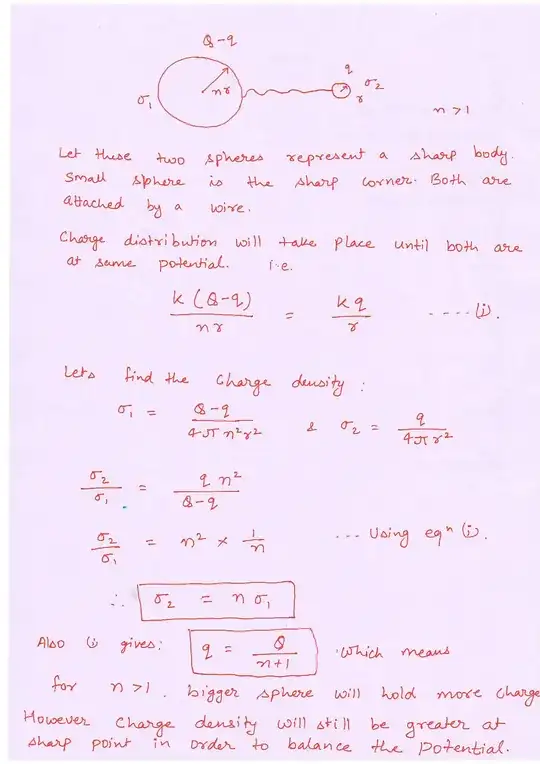 Q-q
nr
σ₁
q
σ₂
r
n>1
Let these two spheres represent a sharp body.
Small sphere is the sharp corner. Both are
attached by a wire.
Charge distribution will take place until both are
at same potential. i.e.
k(Q-q)/nr = kq/r ----(i).
Lets find the charge density:
σ₁ = Q-q/4πn²r² & σ₂ = q/4πr²
σ₂/σ₁ = q n²/Q-q
σ₂/σ₁ = n² × 1/n --- Using eqⁿ (i).
∴ σ₂ = n σ₁
Also (i) gives: q = Q/n+1 . Which means
for n>1, bigger sphere will hold more charge
However charge density will still be greater at
sharp point in order to balance the potential.